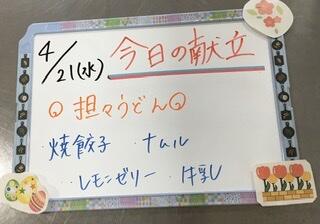 4/21(水) 今日の献立
担々うどん
・焼餃子 ・ナムル
・レモンゼリー ・牛乳